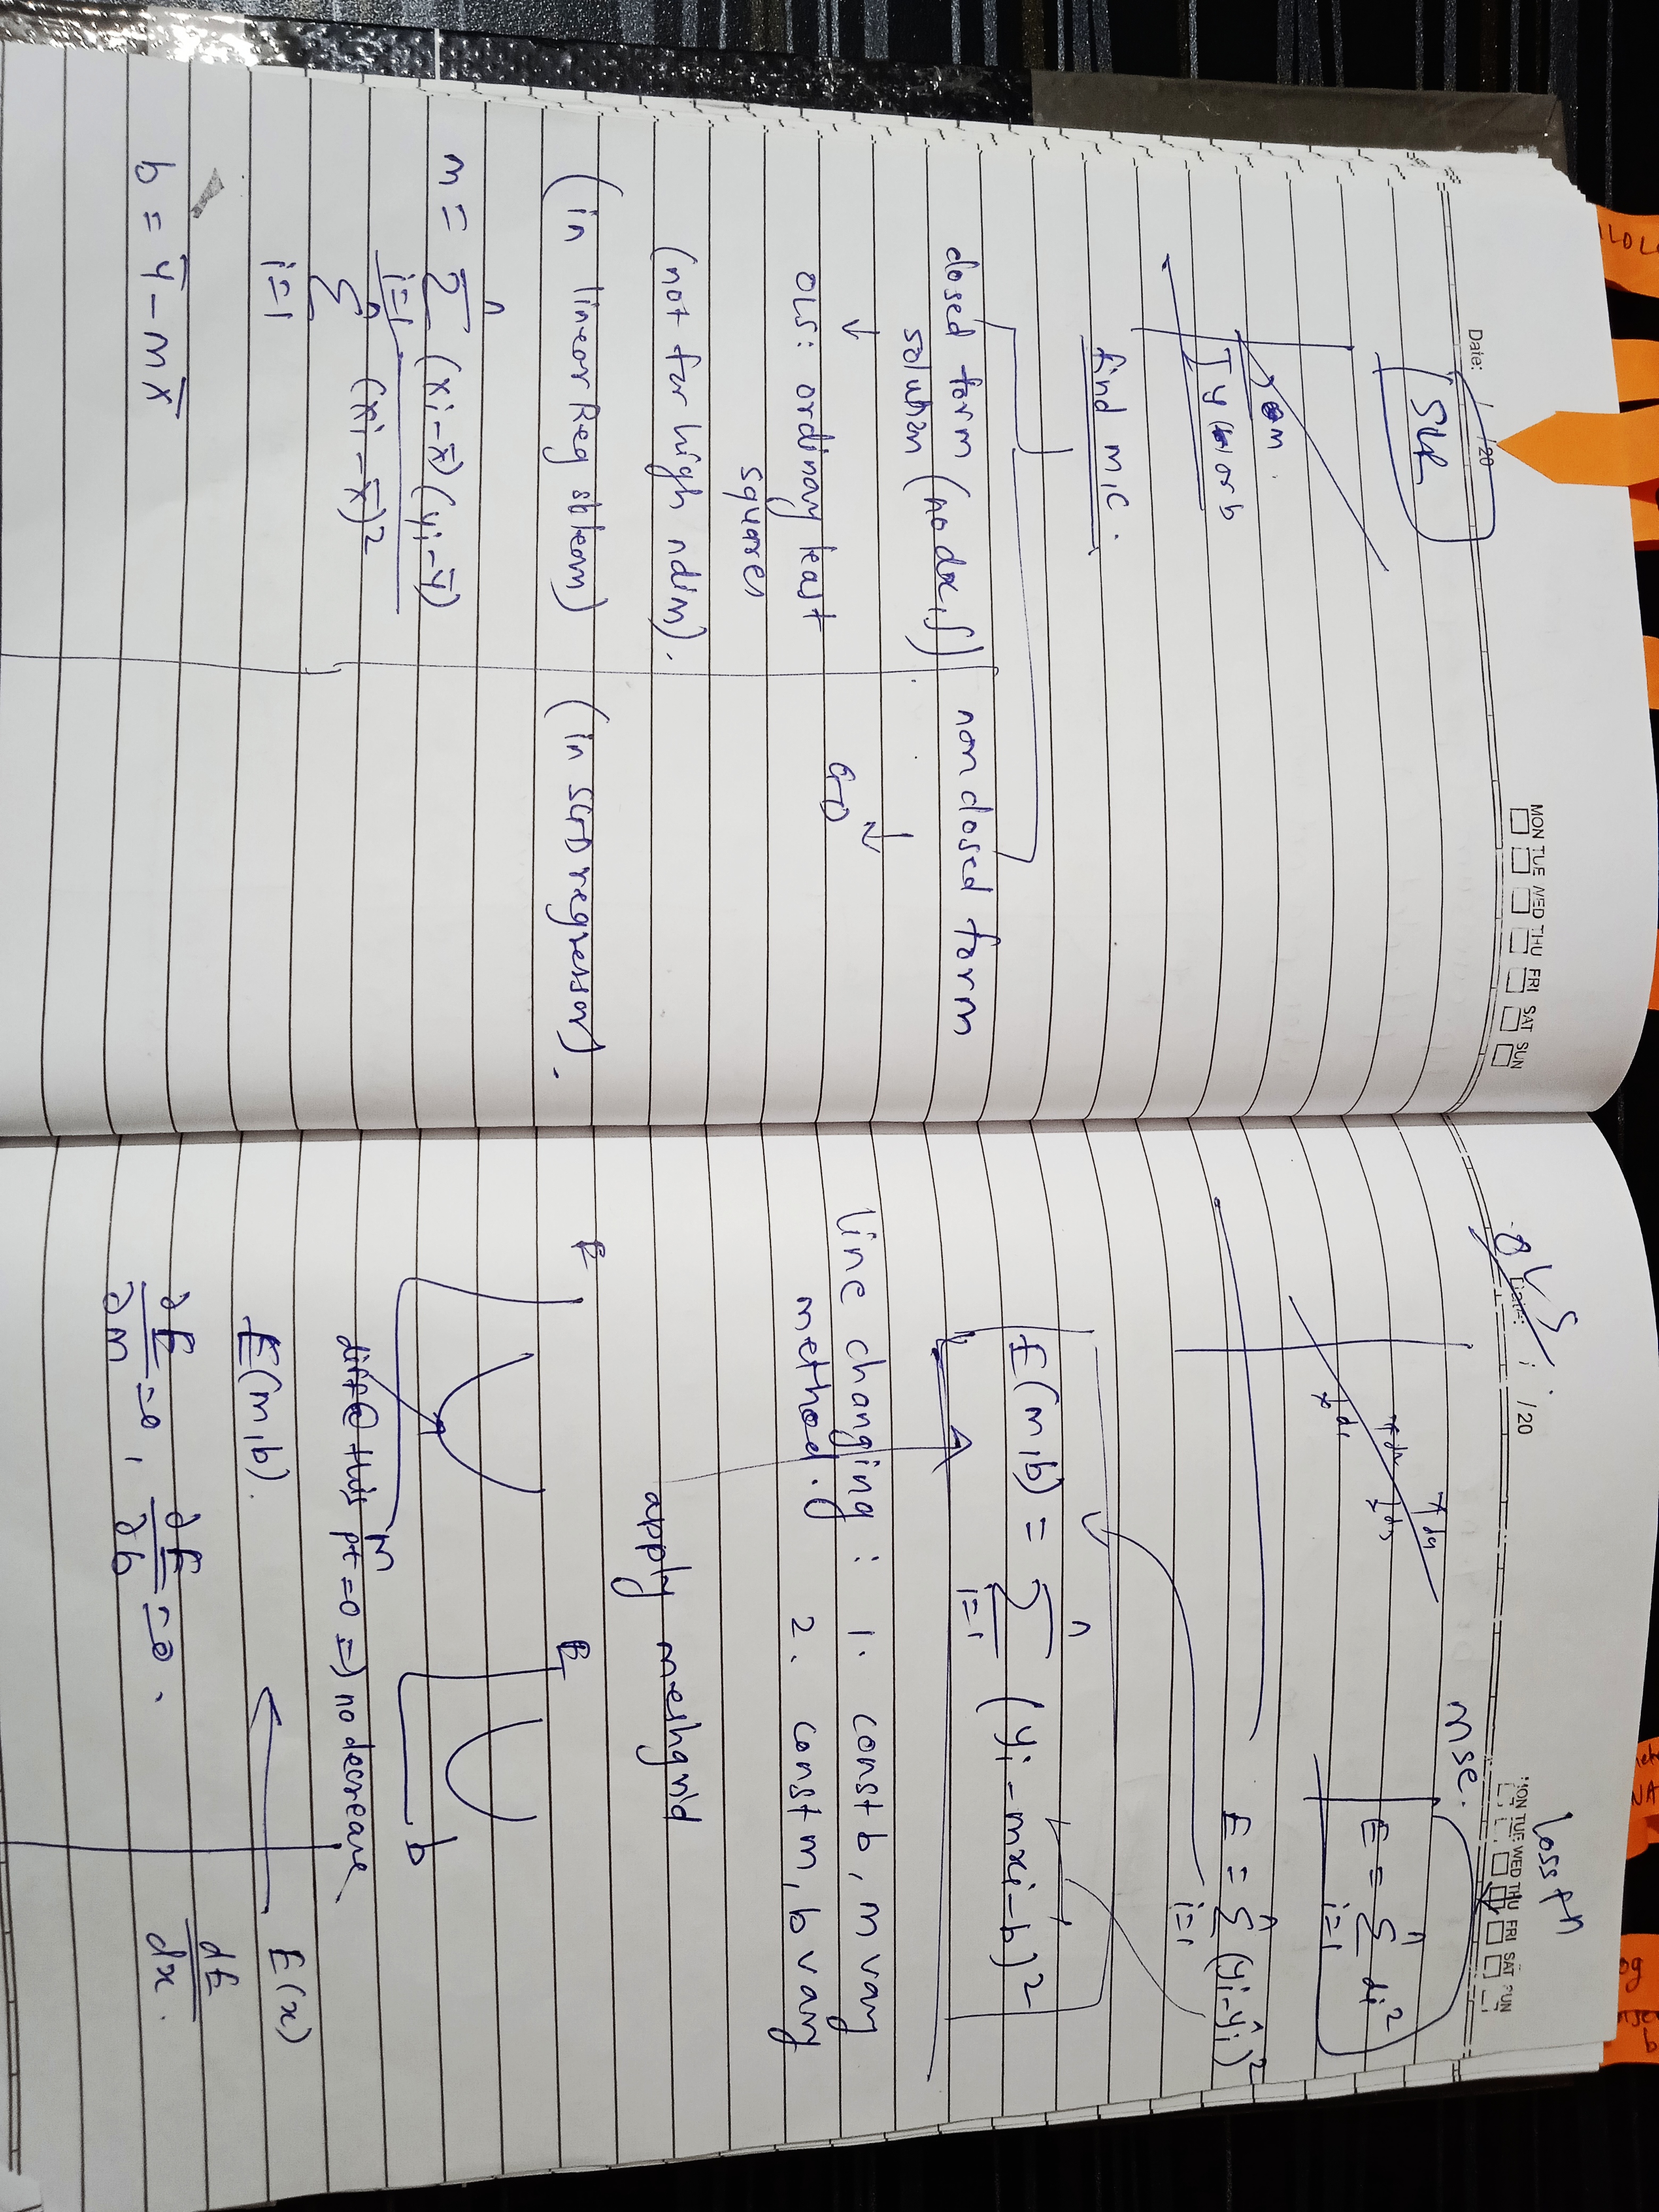 Date: / /20
MON TUE WED THU FRI SAT SUN
SLR
m.
find m, c.
closed form
solution (no dx, ∫)
non closed form
OLS: ordinary least
squares
GD
(not for high ndim).
(in linear Reg sklearn)
(in SGD regressor).
m = n∑i=1 (xi - x̄)(yi - ȳ)
n∑i=1 (xi - x̄)²
b = ȳ - mx̄
OLS
Date: / /20
MON TUE WED THU FRI SAT SUN
loss fn
mse.
d1
d2
d3
d4
E = n∑i=1 di²
E = n∑i=1 (yi - ŷi)²
E(m,b) = n∑i=1 (yi - mxi - b)²
Line changing : 1. const b, m vary
method. 2. const m, b vary
apply meshgrid
E
m
E
b
diff @ this pt = 0 => no decrease
E(m,b).
E(x)
∂E/∂m = 0, ∂E/∂b = 0.
dE/dx.